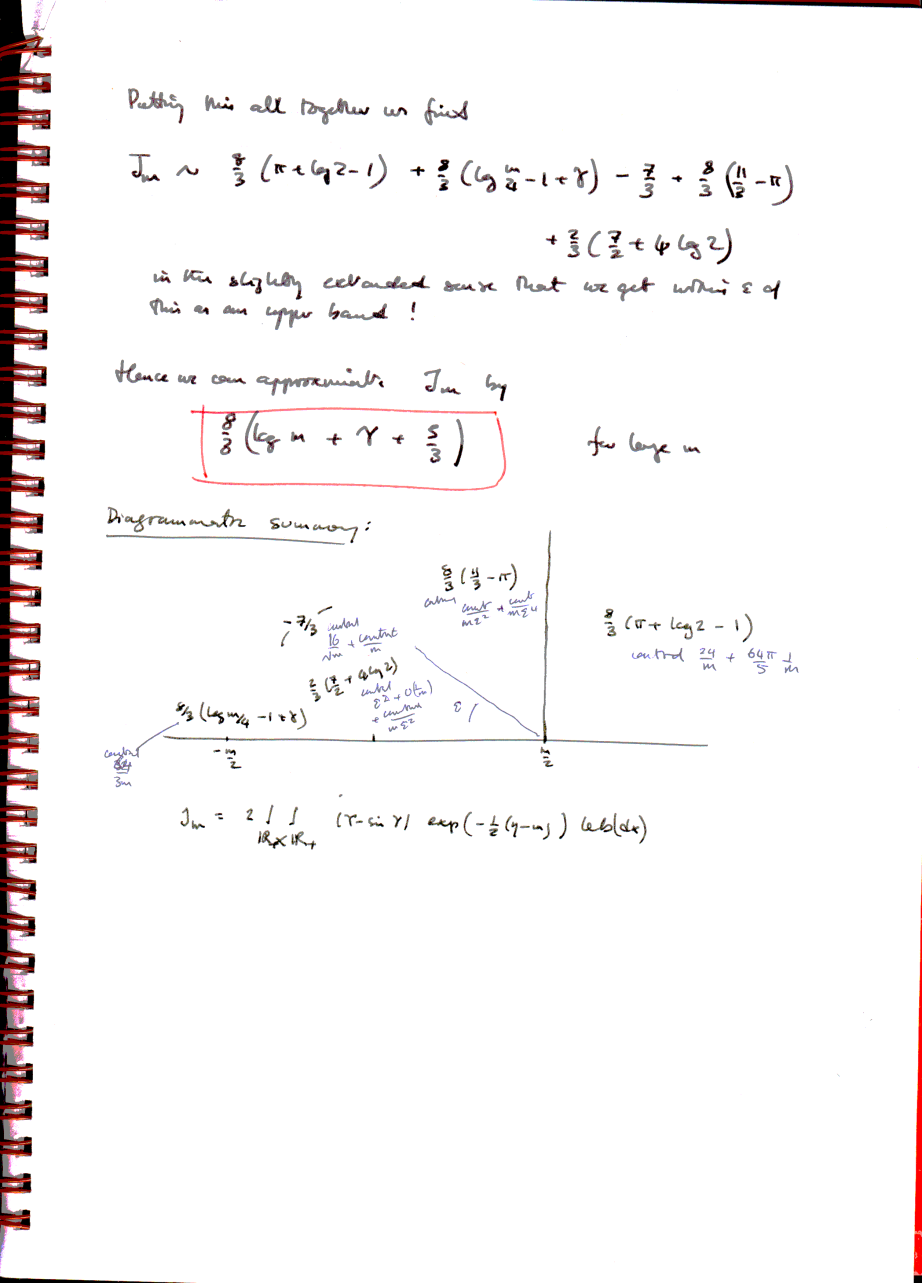 Putting this all together we find
J_m ~ 8/3 (π + log 2 - 1) + 8/3 (log m/4 - 1 + γ) - 7/3 + 8/3 (11/3 - π)
+ 2/3 (7/2 + 4 log 2)
in the slightly extended sense that we get within ε of
this as an upper bound !
Hence we can approximate J_m by
8/3 (log m + γ + 5/3) for large m
Diagrammatic summary:
8/3 (11/3 - π)
const/mε² + const/mε⁴
8/3 (π + log 2 - 1)
control 24/m + 64π/5 1/m
- 7/3 control
16/√m + constant/m
2/3 (7/2 + 4 log 2)
control
ε² + O(1/m)
+ constant/mε²
ε
8/3 (log m/4 - 1 + γ)
control
3m
- m/2
m/2
J_m = 2 ∫ ∫ (γ - sin γ) exp(-½(η - m)) Leb(dx)